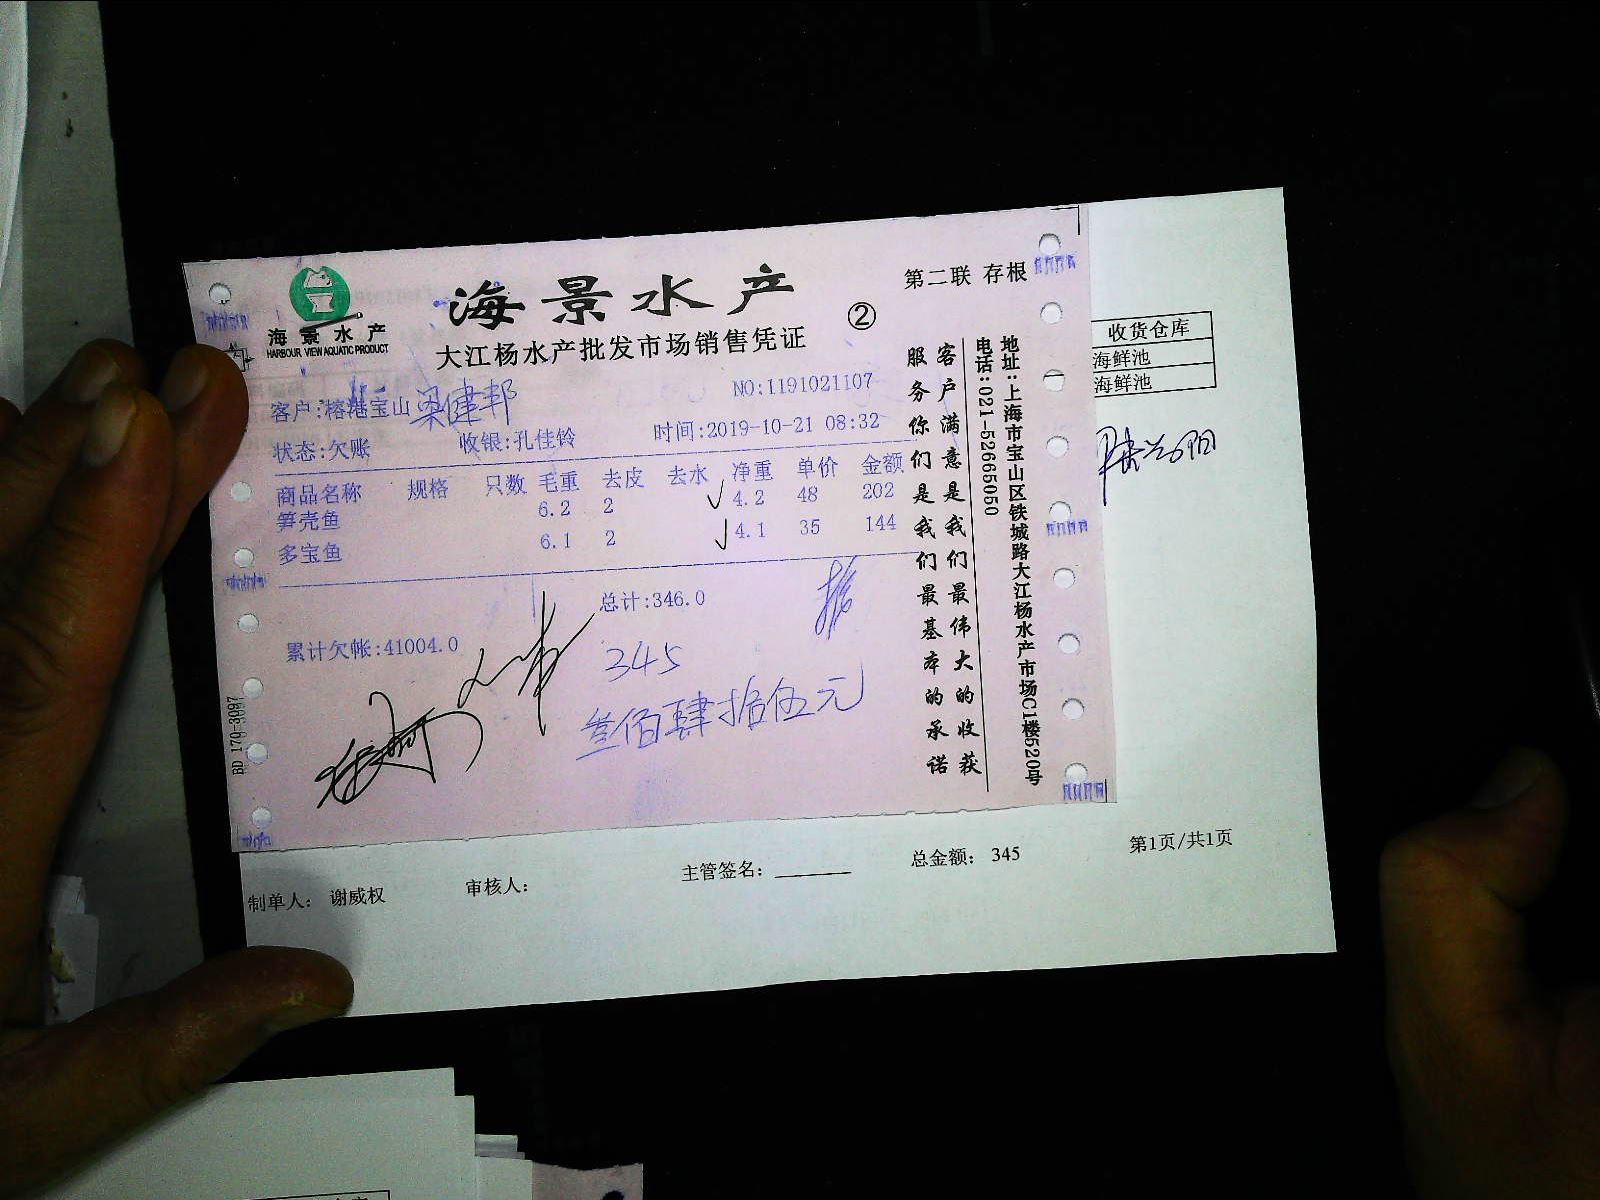 海景水产
HARBOUR VIEW AQUATIC PRODUCT
海景水产
大江杨水产批发市场销售凭证
②
第二联 存根
客户:榕港宝山 梁健邦
NO:1191021107
状态:欠账 收银:孔佳铃 时间:2019-10-21 08:32
商品名称 规格 只数 毛重 去皮 去水 净重 单价 金额
笋壳鱼 6.2 2 4.2 48 202
多宝鱼 6.1 2 4.1 35 144
总计:346.0
累计欠帐:41004.0
345
叁佰肆拾伍元
客户满意是我们最伟大的收获
服务你们是我们最基本的承诺
地址:上海市宝山区铁城路大江杨水产市场C1楼520号
电话:021-52665050
BD 179-3097
收货仓库
海鲜池
海鲜池
制单人: 谢威权 审核人: 主管签名: 总金额: 345 第1页/共1页